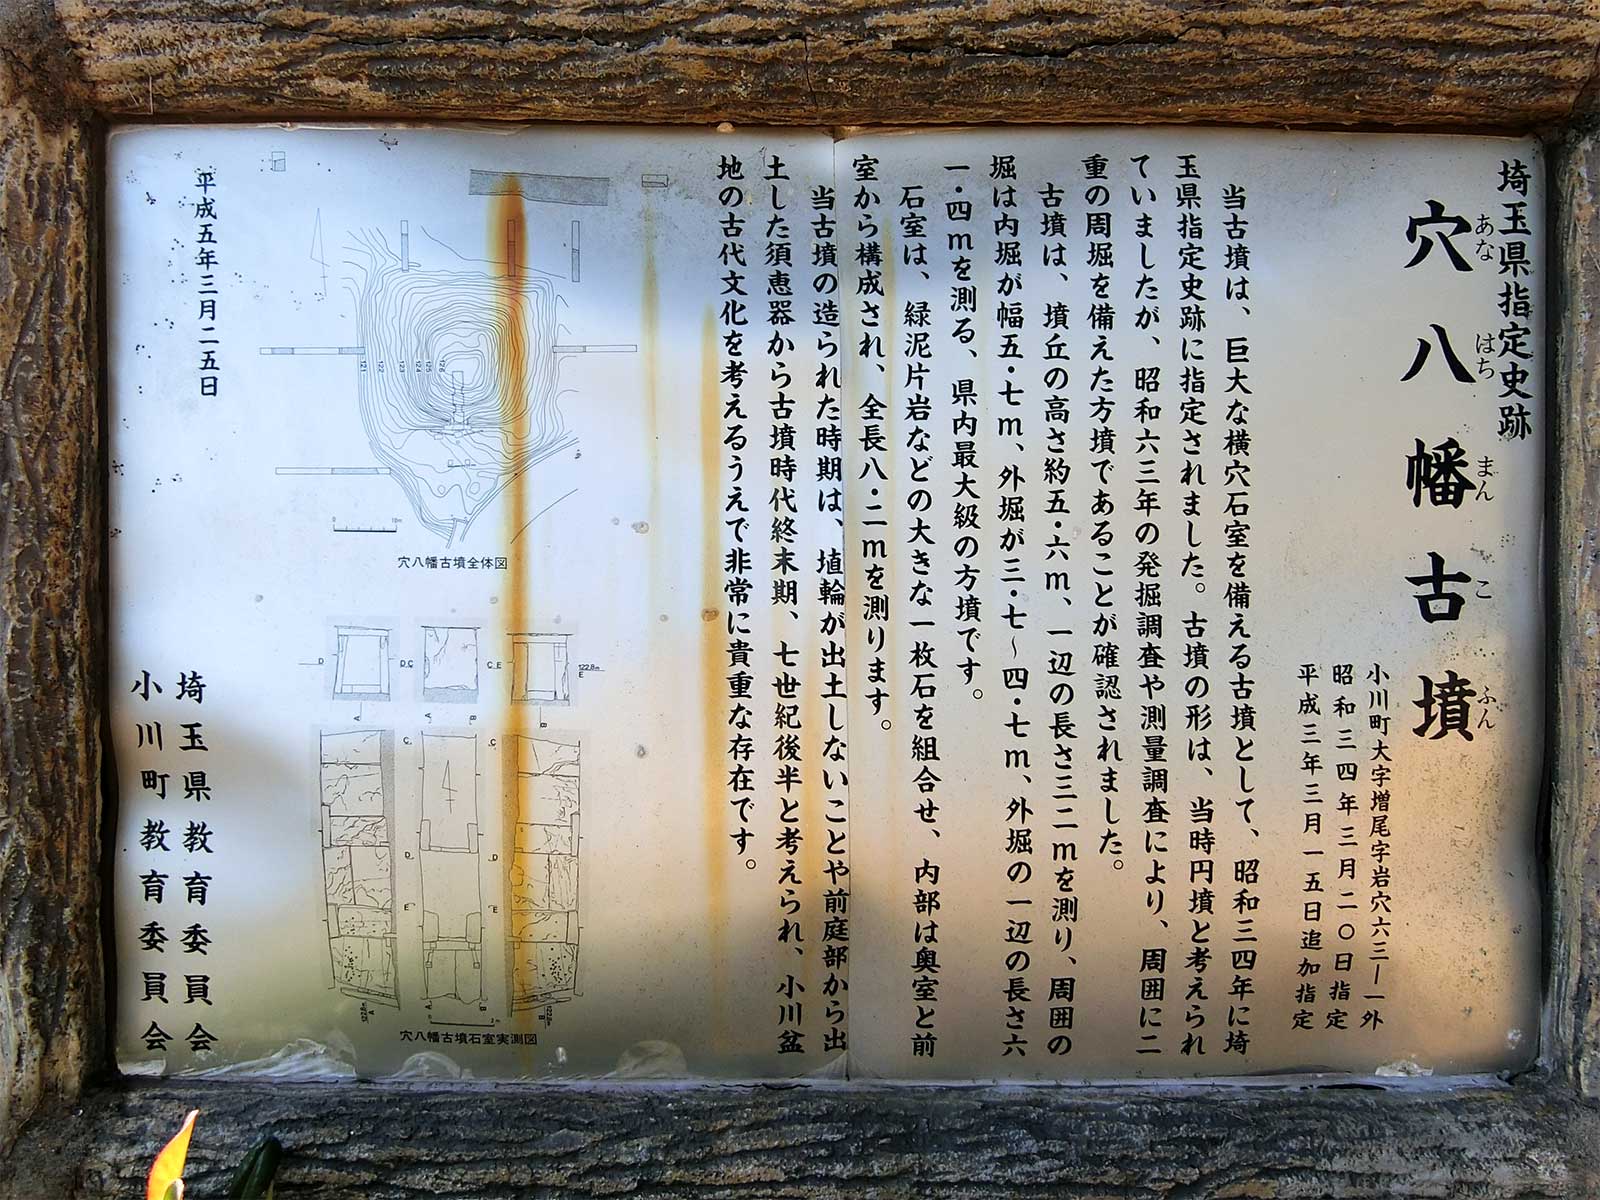 埼玉県指定史跡
穴八幡古墳
あな はち まん こ ふん
小川町大字増尾字岩穴六三―一外
昭和三四年三月二〇日指定
平成三年三月一五日追加指定
当古墳は、巨大な横穴石室を備える古墳として、昭和三四年に埼
玉県指定史跡に指定されました。古墳の形は、当時円墳と考えられ
ていましたが、昭和六三年の発掘調査や測量調査により、周囲に二
重の周堀を備えた方墳であることが確認されました。
古墳は、墳丘の高さ約五・六m、一辺の長さ三二mを測り、周囲の
堀は内堀が幅五・七m、外堀が三・七〜四・七m、外堀の一辺の長さ六
一・四mを測る、県内最大級の方墳です。
石室は、緑泥片岩などの大きな一枚石を組合せ、内部は奥室と前
室から構成され、全長八・二mを測ります。
当古墳の造られた時期は、埴輪が出土しないことや前庭部から出
土した須恵器から古墳時代終末期、七世紀後半と考えられ、小川盆
地の古代文化を考えるうえで非常に貴重な存在です。
121 122 123 124 125 126
穴八幡古墳全体図
穴八幡古墳石室実測図
平成五年三月二五日
埼玉県教育委員会
小川町教育委員会